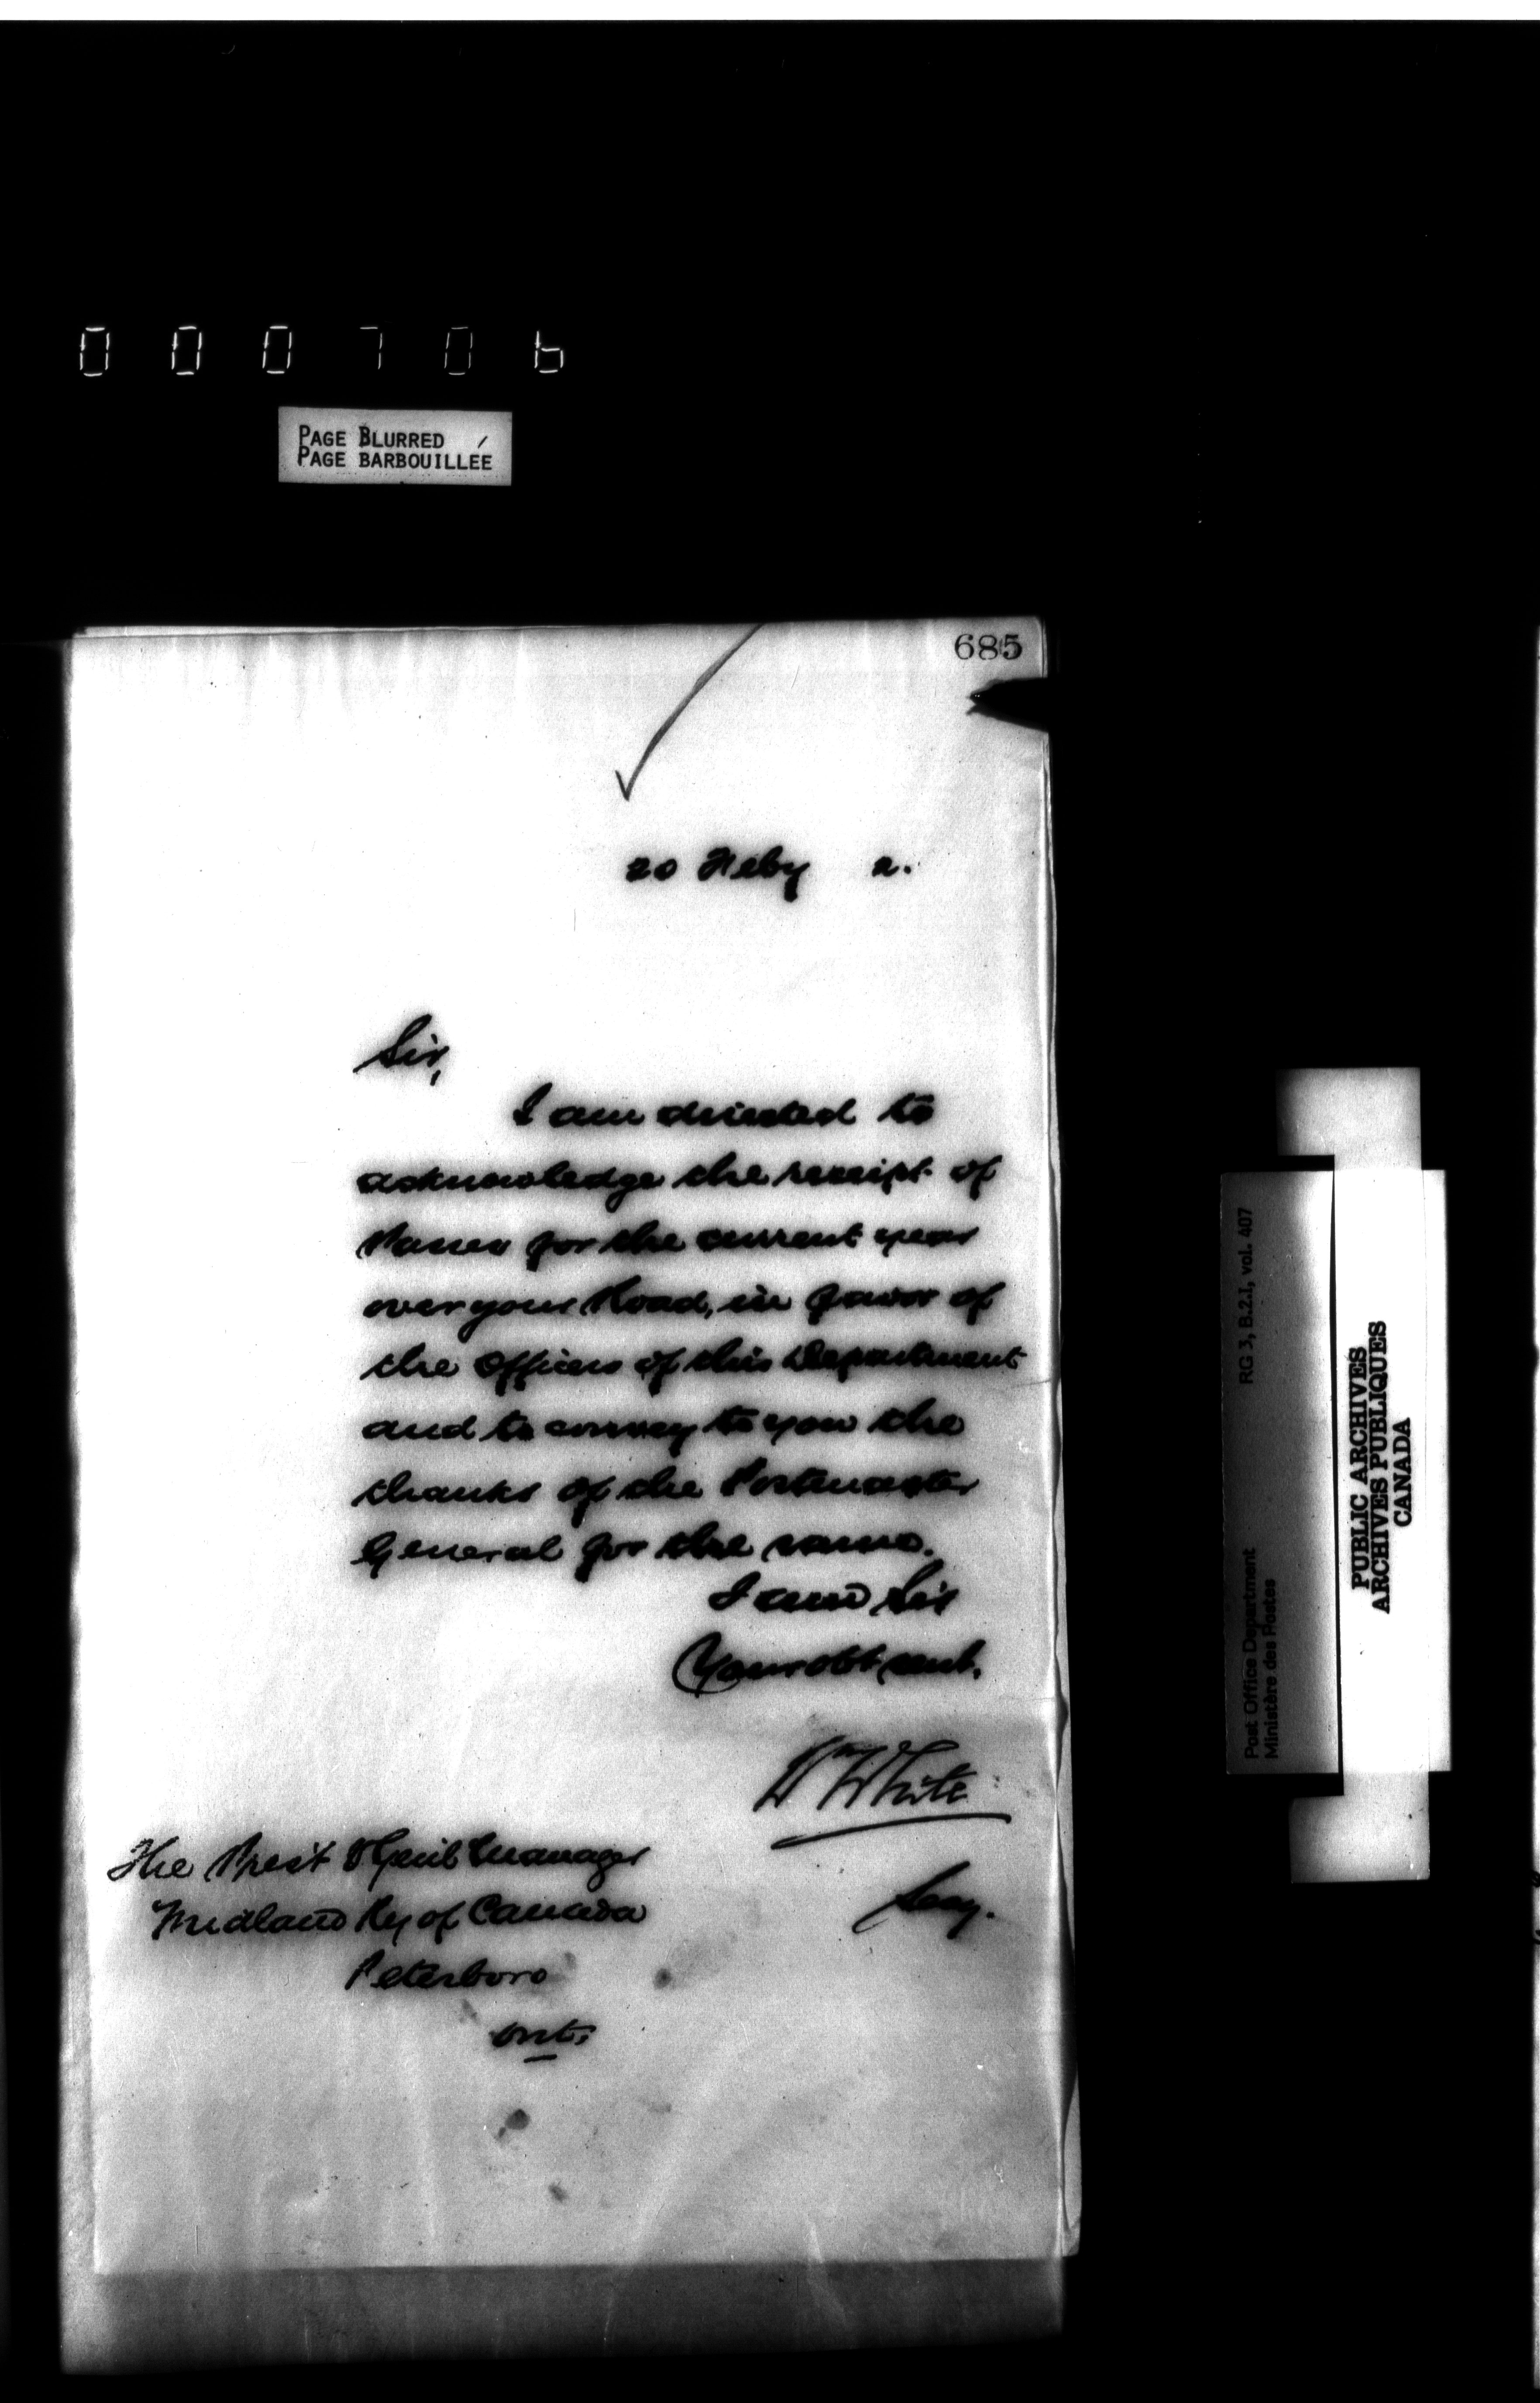 000706
PAGE BLURRED
PAGE BARBOUILLÉE
685
20 Feby 2.
Sir,
I am directed to
acknowledge the receipt of
Passes for the current year
over your Road, in favor of
the Officers of this Department
and to convey to you the
thanks of the Postmaster
General for the same.
I am Sir
Your obt servt.
Wm White
Secy.
The Prest & Genl Manager
Midland Ry of Canada
Peterboro
Ont.
Post Office Department RG 3, B.2.I, vol. 407
Ministère des Postes
PUBLIC ARCHIVES
ARCHIVES PUBLIQUES
CANADA